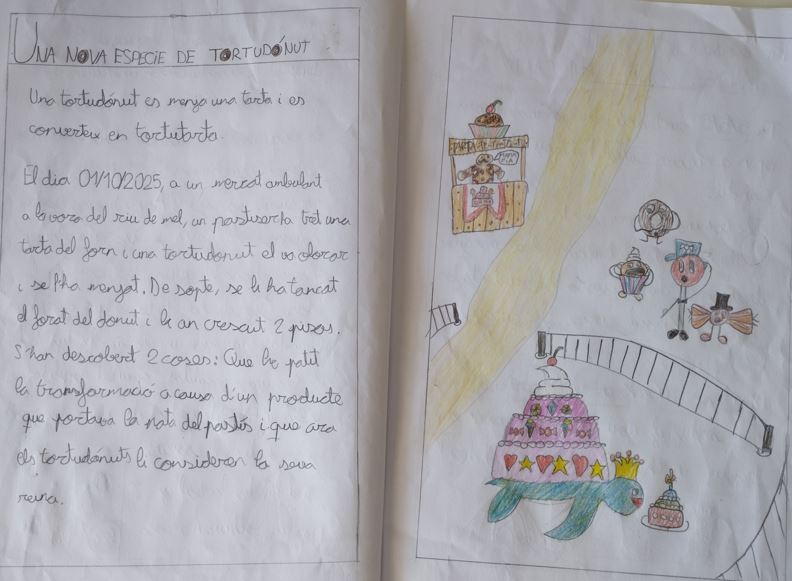 UNA NOVA ESPECIE DE TORTUDÓNUT
Una tortudónut es menja una tarta i es
converteix en tortutarta.
El dia 01/10/2025, a un mercat ambulant
a la vora del riu de mel, un pastisser ha tret una
tarta del forn i una tortudonut el va olorar
i se l'ha menjat. De sopte, se li ha tancat
el forat del donut i li an crescut 2 pisos.
S'han descobert 2 coses: Que ha patit
la transformació a causa d'un producte
que portava la nata del pastís i que ara
els tortudónuts la consideren la seva
reina.